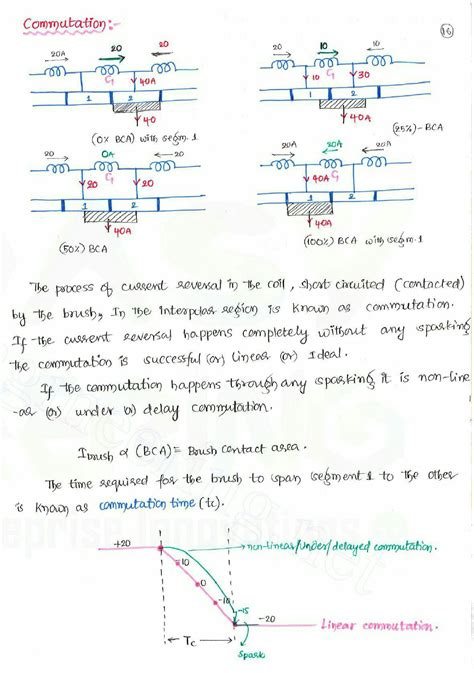 Commutation:-
16
20A 20 20
40A
1 2
40
(0% BCA) with segm.1
20A 10 20
10 30
1 2
40A
(25%)-BCA
20 0A 20
C1
20 20
1 2
40A
(50%) BCA
20 20A 20
40A C1
1 2
40A
(100%) BCA with segm.1
The process of current reversal in the coil, short circuited (contacted)
by the brush, In the interpolar region is known as commutation.
If the current reversal happens completely without any sparking
the commutation is successful (or) Linear (or) Ideal.
If the commutation happens through any sparking it is non-line
-ar (or) under (or) delay commutation.
Ibrush α (BCA) = Brush contact area.
The time required for the brush to span segment 1 to the other
is known as commutation time (tc).
+20
non-linear/Under/delayed commutation.
10
0
-10
-15
-20
Linear commutation.
Tc
Spark